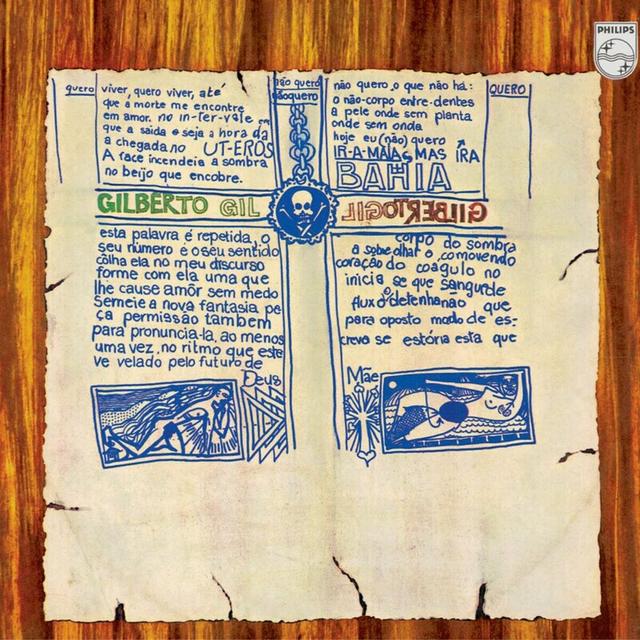 PHILIPS
quero
viver, quero viver, até
que a morte me encontre
em amor. no in-ter-vale em
que a saida e seja a hora da
a chegada no UT-EROS
A face incendeia a sombra
no beijo que encobre.
não quero
nãoquero
não quero o que não há:
o não-corpo entre-dentes
a pele onde sem planta
onde sem onda
hoje eu (não) quero
IR-A-MAIAS MAS IRA
BAHIA
QUERO
GILBERTO GIL
GILBERTO GIL
esta palavra é repetida, o
seu número é o seu sentido
côlha ela no meu discurso
forme com ela uma que
lhe cause amôr sem mêdo
Semeie a nova fantasia pe
ça permissão também
para pronuncia-la, ao menos
uma vez, no ritmo que este
ve velado pelo futuro de
Deus
corpo do sombra
a sobe olhar o comovendo
coração do coagulo no
inicia se que sangue de
fluxo detenha não que
para oposto modo de es-
crevo se estória esta que
Mãe